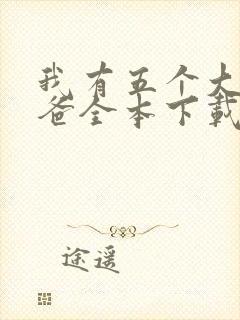 我有五个大
爸全本下载
途遥